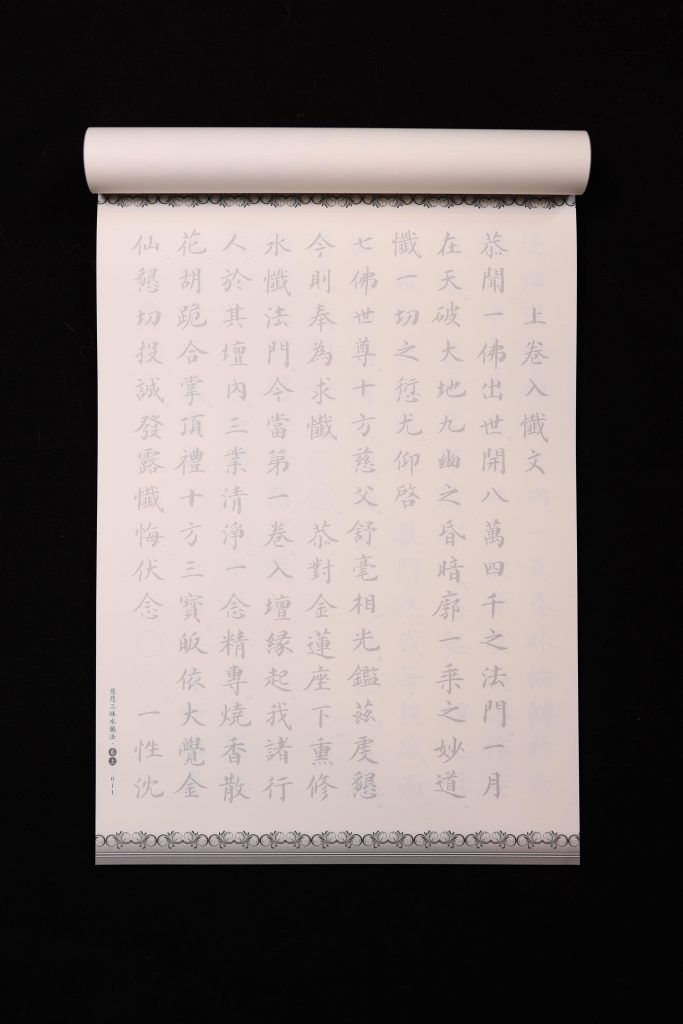 上卷入懺文
恭聞一佛出世開八萬四千之法門一月
在天破大地九幽之昏暗廓一乘之妙道
懺一切之愆尤仰啓
七佛世尊十方慈父舒毫相光鑑茲虔懇
今則奉為求懺○○恭對金蓮座下熏修
水懺法門今當第一卷入壇縁起我諸行
人於其壇內三業清淨一念精專燒香散
花胡跪合掌頂禮十方三寶皈依大覺金
仙懇切投誠發露懺悔伏念○○一性沈
慈悲三昧水懺法 卷上 011